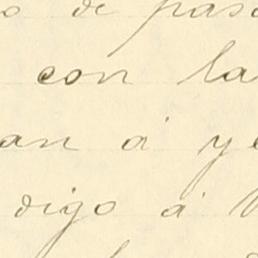 de pas
con la
an á ye
digo á V